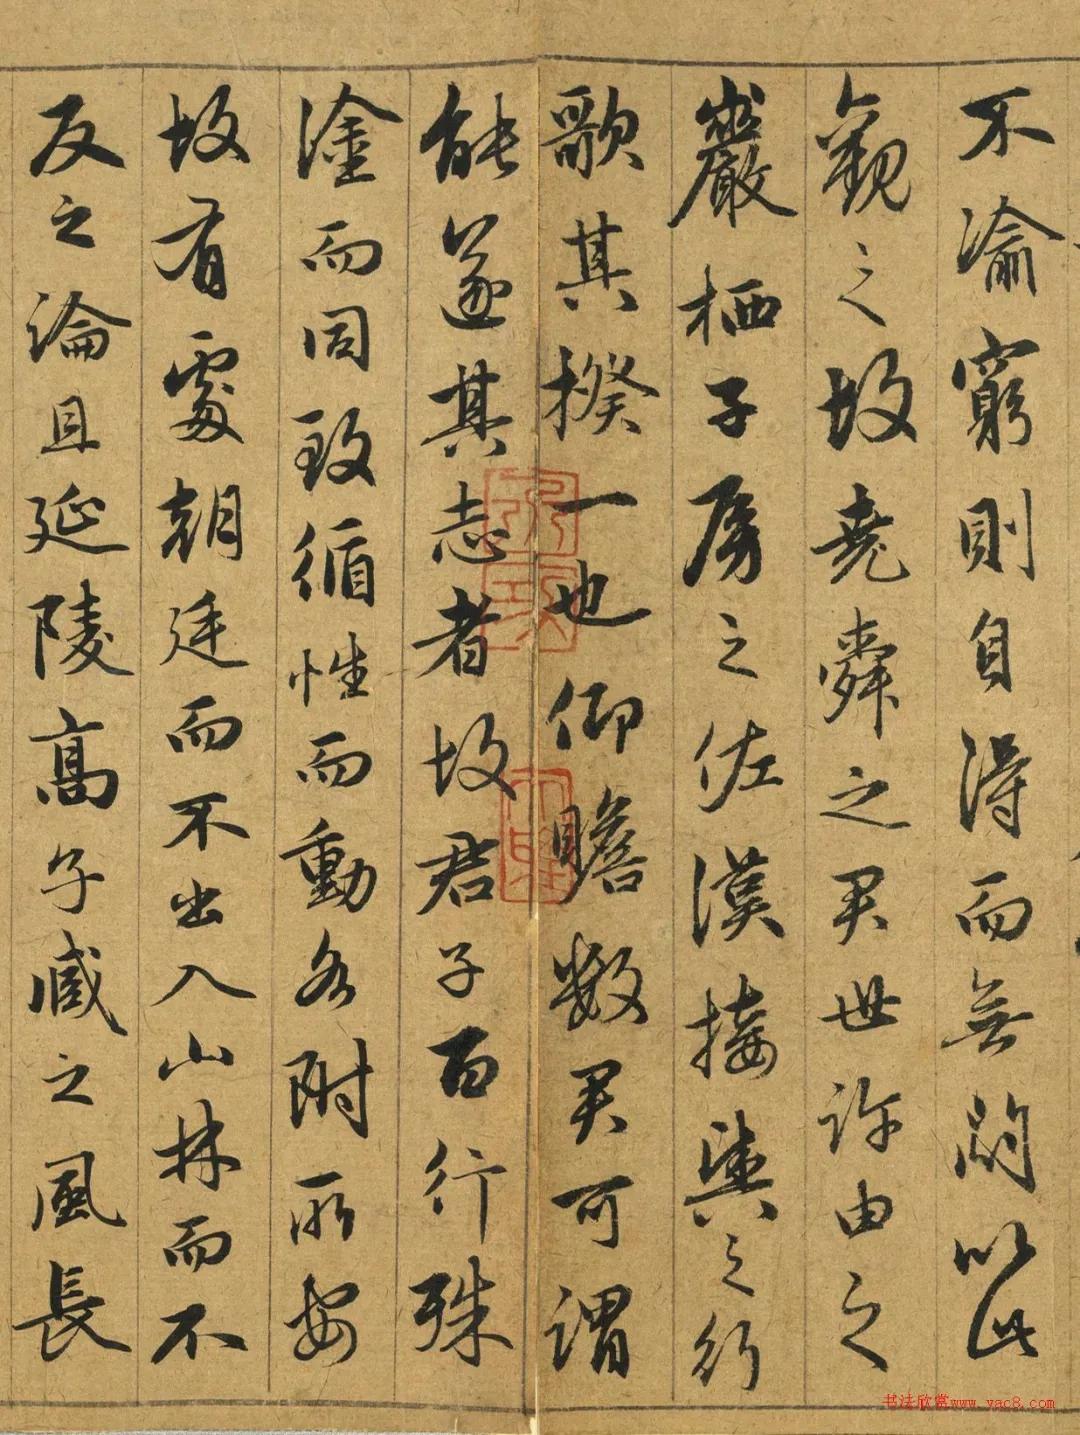 不渝窮則自得而無悶以此
觀之故堯舜之君世許由之
巖栖子房之佐漢接輿之行
歌其揆一也仰瞻數君可謂
能遂其志者故君子百行殊
塗而同致循性而動各附所安
故有處朝廷而不出入山林而不
反之論且延陵高子臧之風長
书法欣赏www.yac8.com